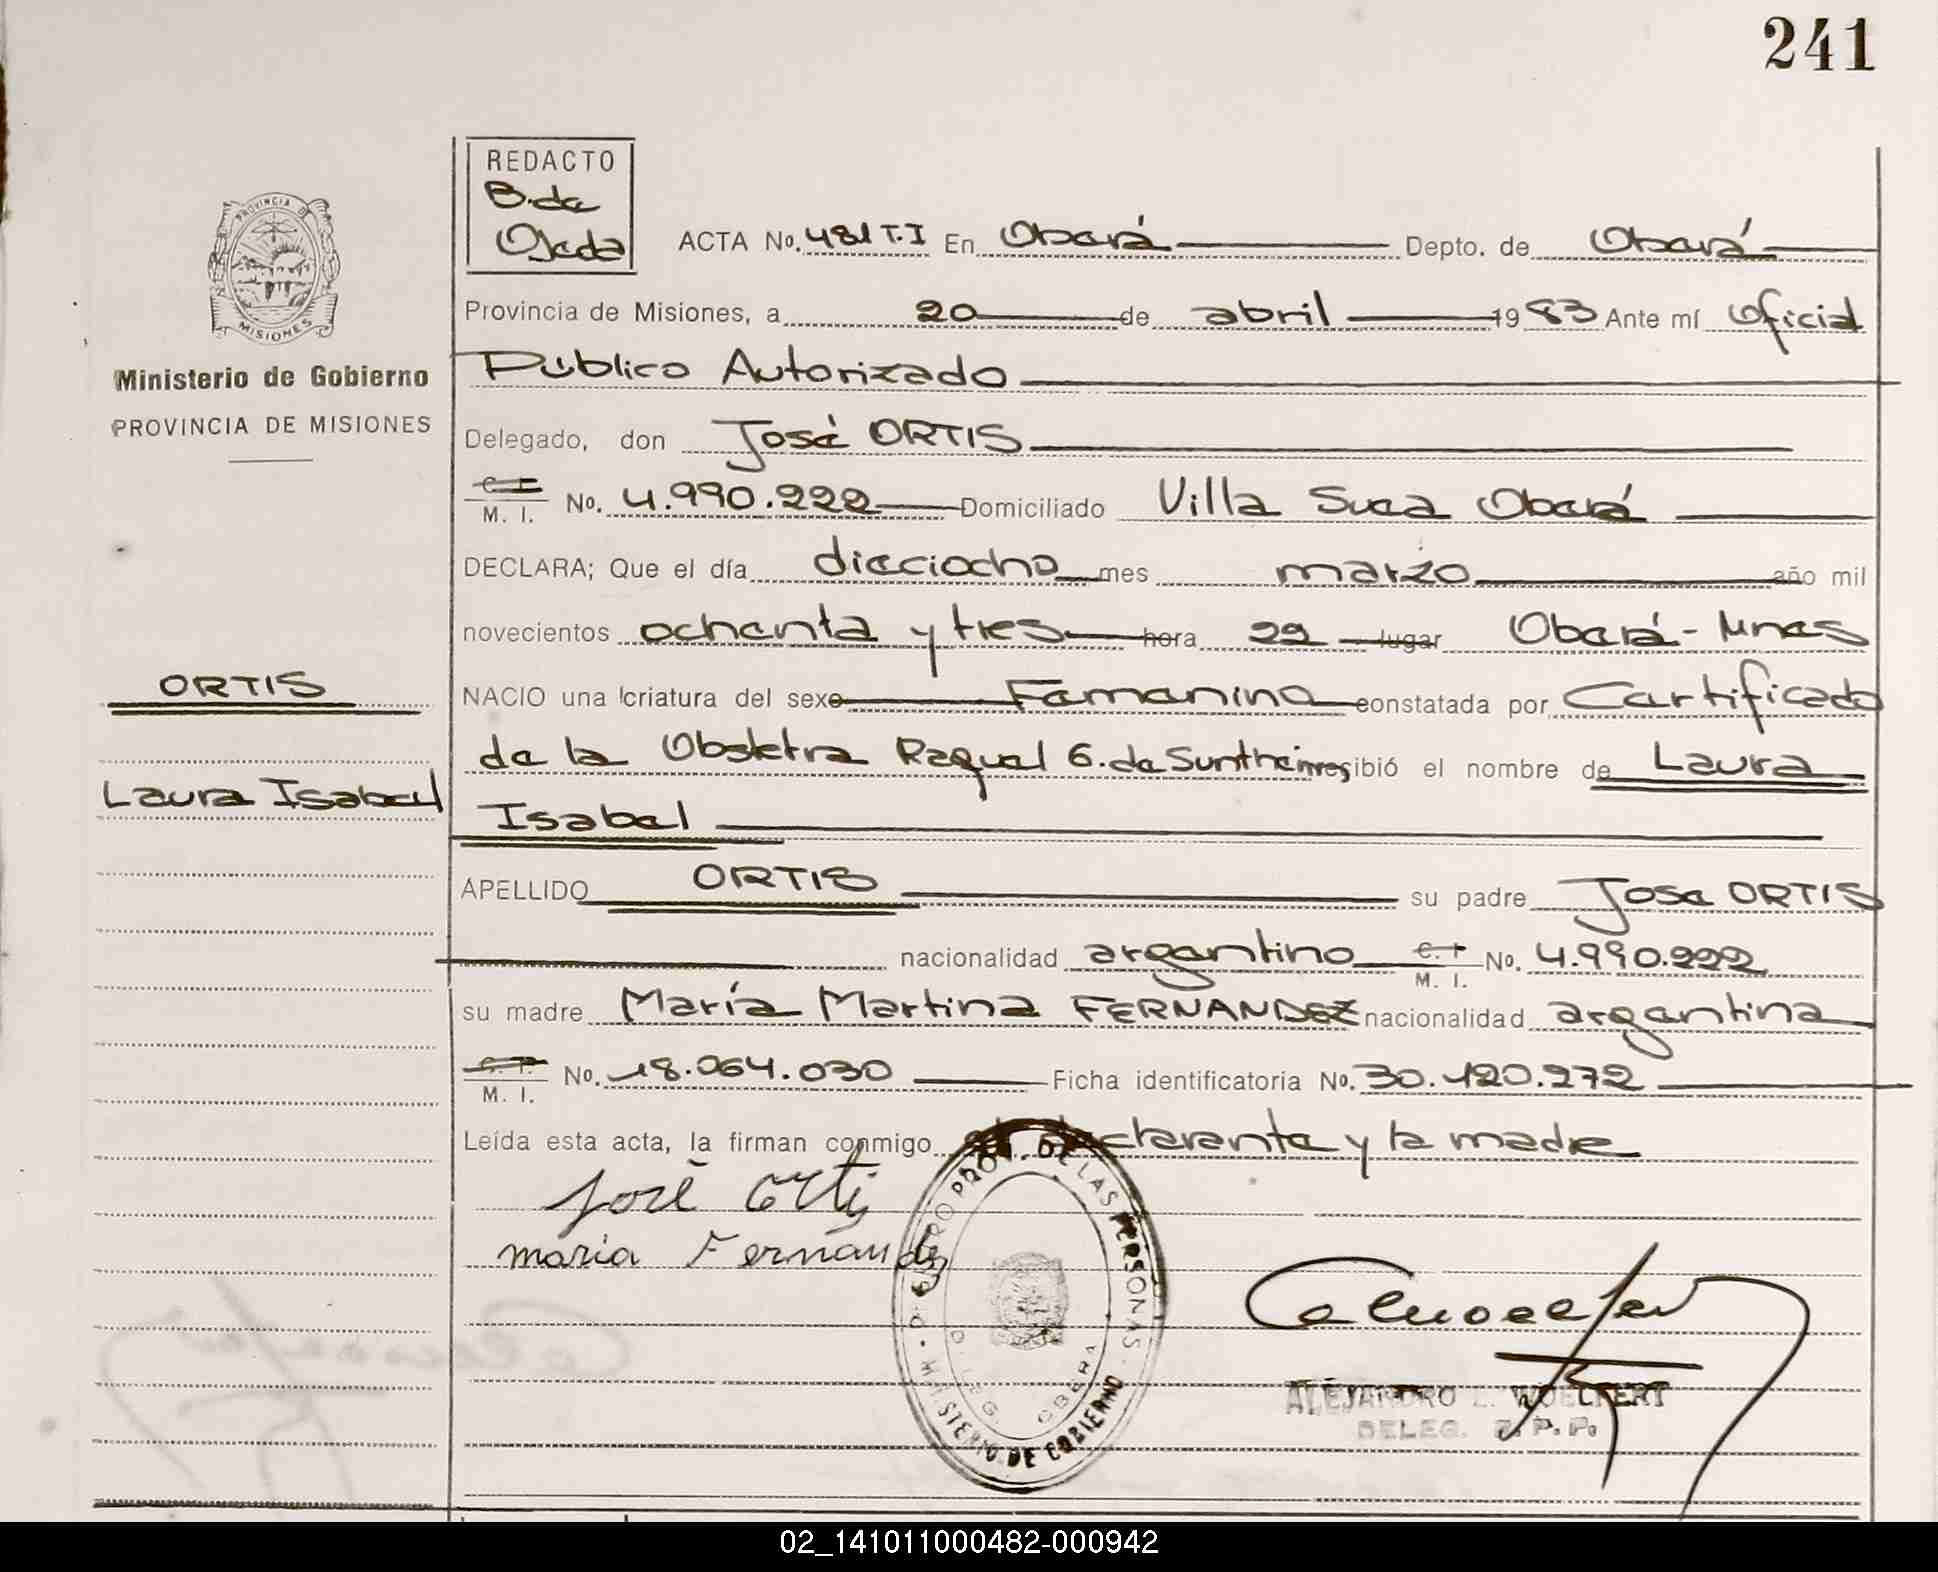 241
REDACTO
B. de
Ojeda
ACTA No. 481 T.I En Oberá Depto. de Oberá
PROVINCIA DE
MISIONES
Provincia de Misiones, a 20 de abril 1983 Ante mí Oficial
Ministerio de Gobierno
Público Autorizado
PROVINCIA DE MISIONES
Delegado, don José ORTIS
C. I. M. I. No. 4.990.222 Domiciliado Villa Suea Oberá
DECLARA; Que el día dieciocho mes marzo año mil
novecientos ochenta y tres hora 22 lugar Oberá-Mnes
ORTIS
NACIO una criatura del sexo Femenino constatada por Certificado
de la Obstetra Raquel G. de Suntheim recibió el nombre de Laura
Laura Isabel
Isabel
APELLIDO ORTIS su padre Jose ORTIS
nacionalidad argentino C. I. M. I. No. 4.990.222
su madre María Martina FERNANDEZ nacionalidad argentina
C. I. M. I. No. 18.064.030 Ficha identificatoria No. 30.120.272
Leída esta acta, la firman conmigo el declarante y la madre
José Ortis
maria Fernandez
REGISTRO PROV. DE LAS PERSONAS
MINISTERIO DE GOBIERNO
DELEG. OBERA
ALEJANDRO L. WOELFERT
DELEG. R.P.P.
02_141011000482-000942